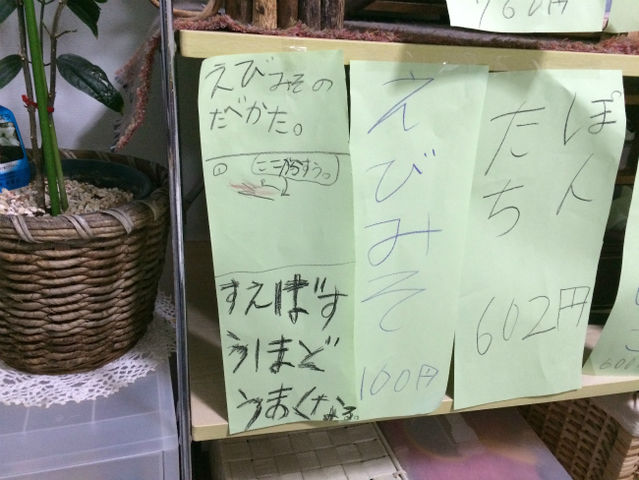 760円
えびみその
たべかた。
①
ここからすう。
すえばす
うほど
うまくなる。
えびみそ
100円
ぽん
たち
602円